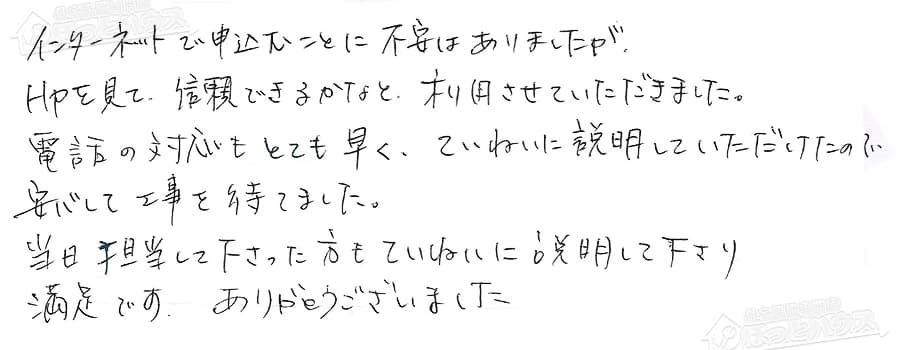 インターネットで申込むことに不安はありましたが、
HPを見て、信頼できるかなと、利用させていただきました。
電話の対応もとても早く、ていねいに説明していただけたので
安心して工事を待てました。
当日担当して下さった方もていねいに説明して下さり
満足です。ありがとうございました